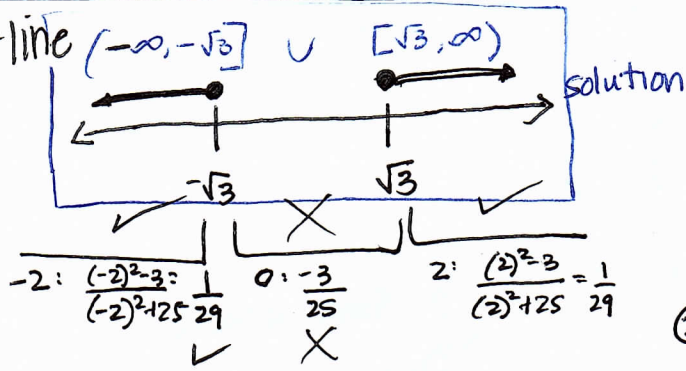 -line (-∞, -√3] ∪ [√3, ∞)
solution
-√3 √3
-2: (-2)²-3 / (-2)²+25 = 1/29 0: -3/25 2: (2)²-3 / (2)²+25 = 1/29